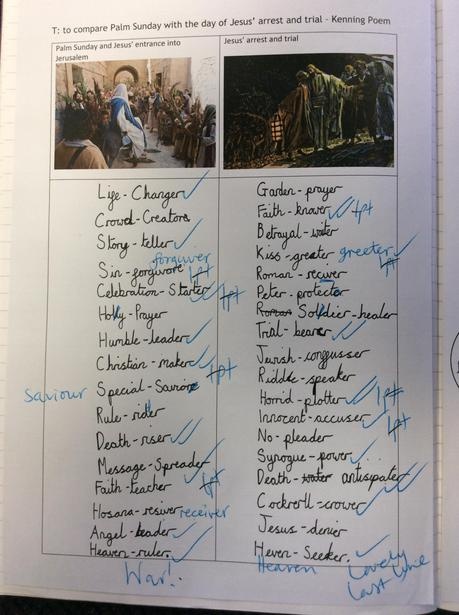 T: to compare Palm Sunday with the day of Jesus' arrest and trial – Kenning Poem
Palm Sunday and Jesus' entrance into
Jerusalem
Life-Changer
Crowd-Creators
Story-teller
forgiver
Sin-forgivore 1pt
Celebration-Starter 1pt
Holy-Prayer
Humble-leader
Christian-maker 1pt
Saviour Special-Saviore
Rule-rider
Death-riser
Message-Spreader
Faith-teacher 1pt
Hosana-resiver receiver
Angel-leader
Heaven-ruler
Jesus' arrest and trial
Garden-prayer
Faith-knower 1pt
Betrayal-waiter
Kiss-greater greeter 1pt
Roman-reciver
Peter-protecter
Roman Soldier-healer
Trial-bearer
Jewish-confusser
Riddle-speaker
Horrid-plotter 1pt
Innocent-accuser 1pt
No-pleader
Synogue-power
Death-waiter antisipater
Cockrell-crower
Jesus-denier
Heven-Seeker.
Heaven
Lovely
Last Line